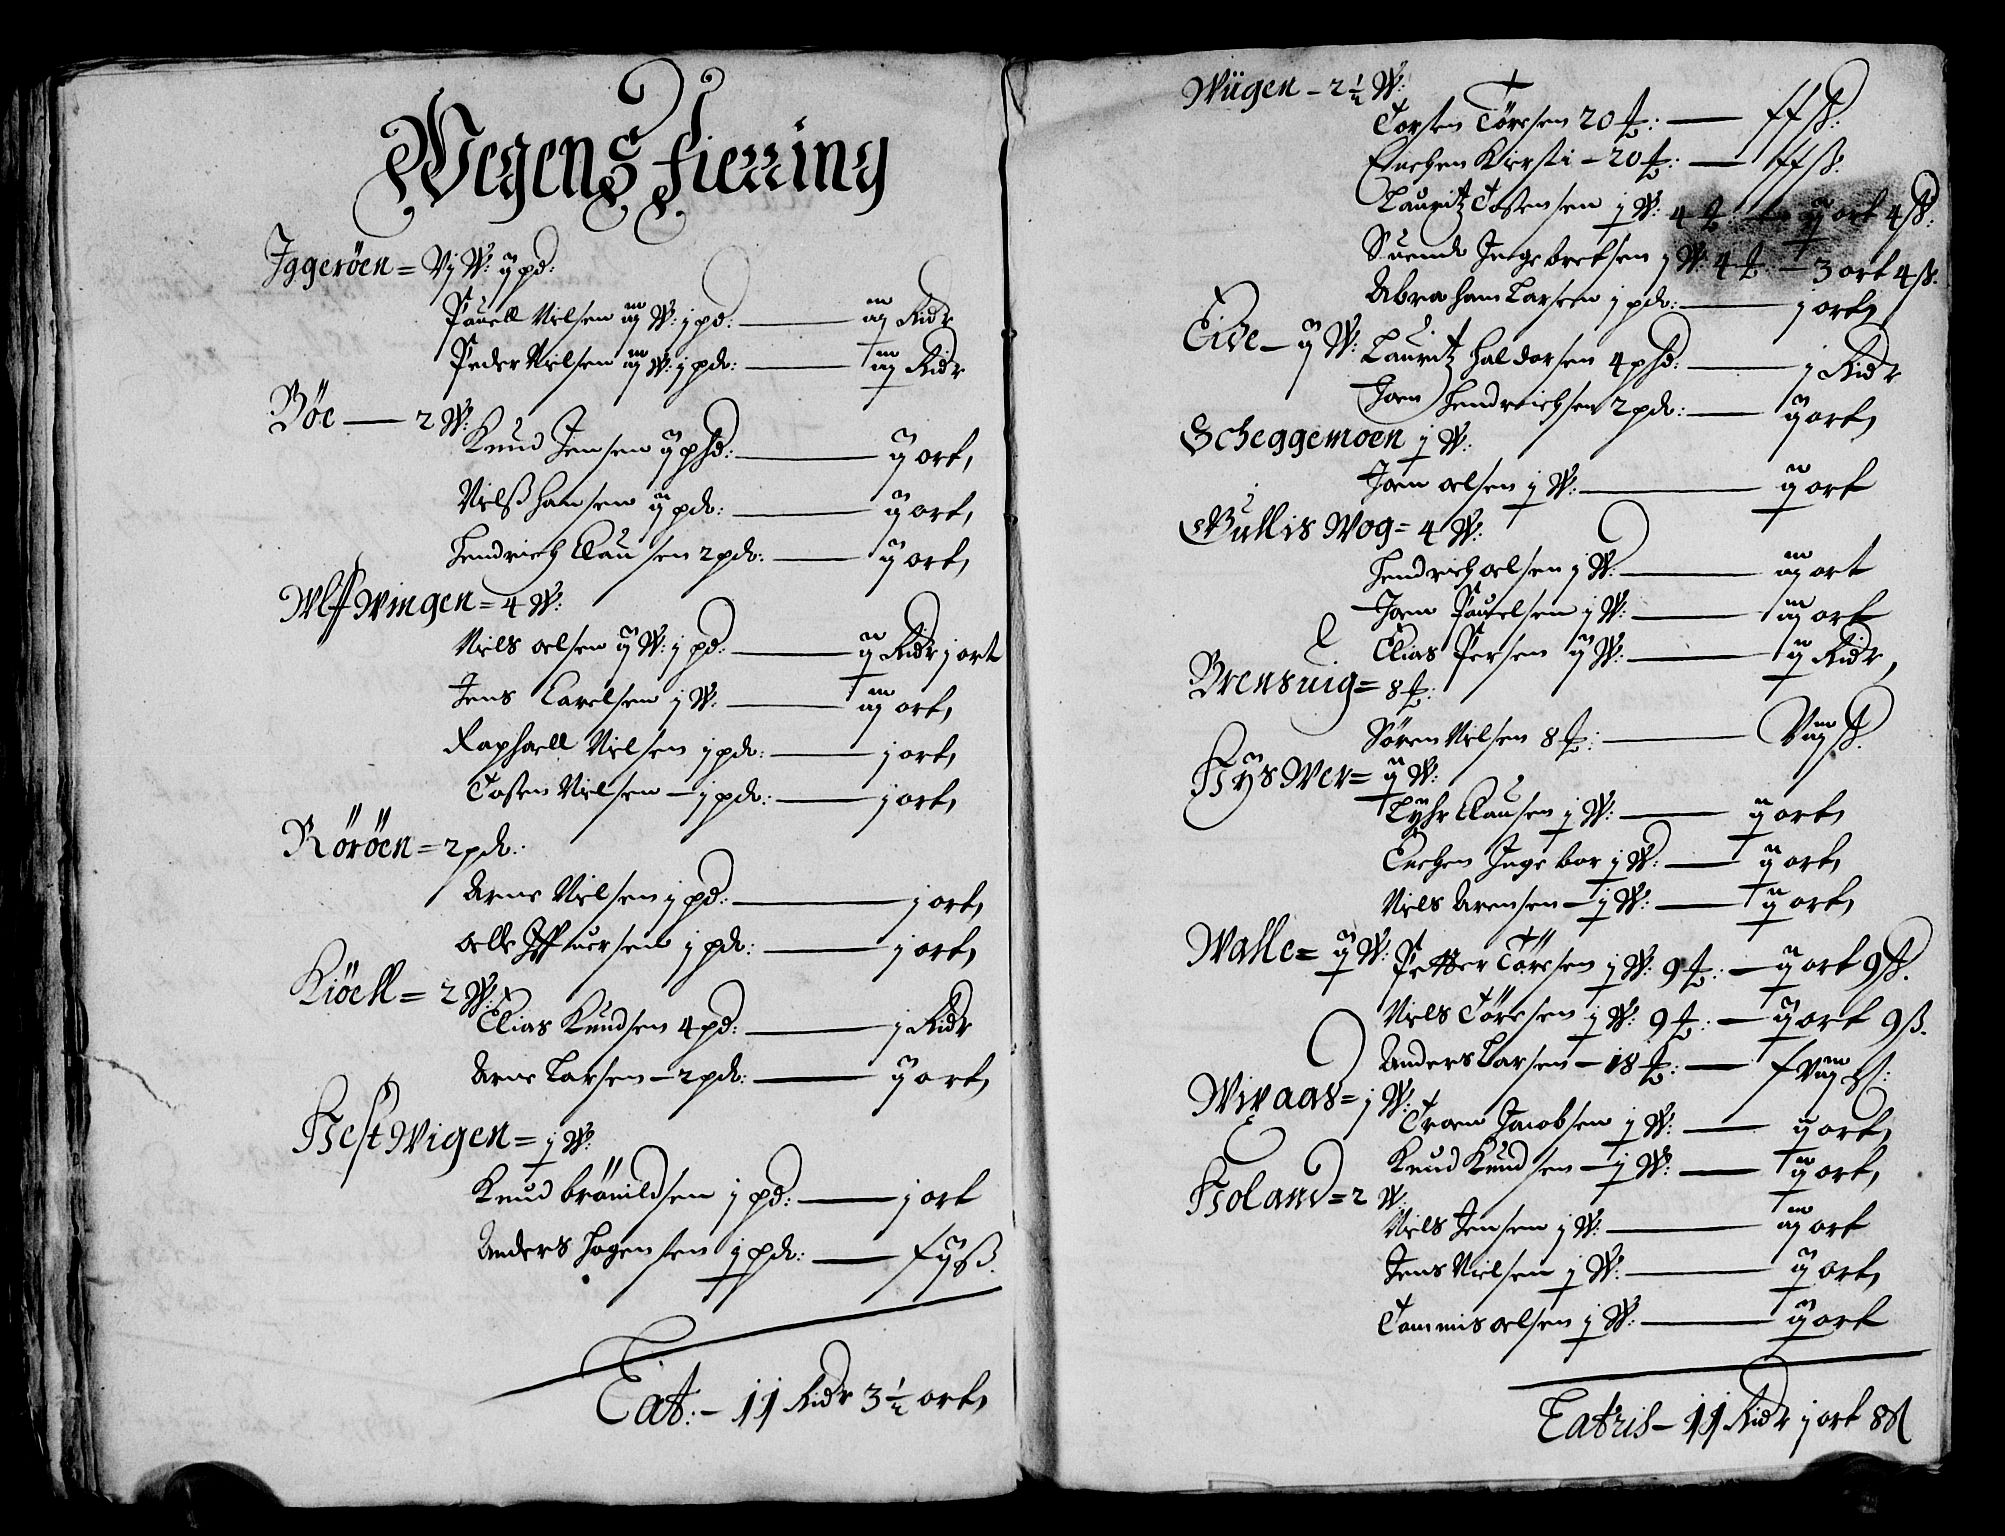 Wegens Fierring
Iggeröen = Vj W: ij pd:
Pauell Nielsen iij W: j pd: — iij Ridr
Peder Nielsen iij W: j pd: — iij Ridr
Böe — 2 W:
Knud Jensen ij phd: — ij ort,
Nielß hansen ij pd: — ij ort,
Hendrich Clausen 2 pd: — ij ort,
Wlffwingen = 4 W:
Niels oelsen ij W: j pd: — ij Ridr j ort
Jens Carelsen j W: — iij ort,
Raphaell Nielsen j pd: — j ort,
Tosten Nielsen — j pd: — j ort,
Röröen = 2 pd:
Arne Nielsen j pd: — j ort,
oelle Iffuersen j pd: — j ort,
Kiöell = 2 W:
Elias Knudsen 4 pd: — j Ridr
Arne Larsen — 2 pd: — ij ort,
Hestwigen = j W:
Knud brönildsen j pd: — j ort
Anders hagensen j pd: — f ij ß.
Lat: — 11 Ridr 3 ½ ort,
Wügen — 2 ½ W:
Torsten Törresen 20 ℔: — ff ß:
Enchen Kirsti — 20 ℔: — ff ß:
Lauritz Tostensen j W: 4 ℔: — ij ort 4 ß:
Suend Ingebretsen j W: 4 ℔ — 3 ort 4 ß.
Abraham Larsen j pd: — j ort,
Eide — ij W:
Lauritz Haldorsen 4 phd: — j Ridr
Joen Hendrichsen 2 pd: — ij ort,
Scheggemoen j W:
Joen oelsen j W: — ij ort
Gullis Wog = 4 W:
Hendrich oelsen j W: — iij ort
Joen Pauelsen j W: — iij ort
Elias Persen ij W: — ij Ridr,
Brensuig = 8 ℔:
Sören Nielsen 8 ℔: — Viij ß.
Hÿswer = ij W:
Lyhr Clausen j W: — ij ort,
Enchen Ingebor j W: — ij ort,
Niels Arensen — j W: — ij ort,
Walle = ij W:
Petter Törresen j W: 9 ℔: — ij ort 9 ß.
Niels Törresen j W: 9 ℔: — ij ort 9 ß.
Anders Larsen — 18 ℔: — f Viij ß:
Wivaas = j W:
Troen Jacobsen j W: — ij ort,
Knud Knudsen — j W: — ij ort,
Holand = 2 W:
Niels Jensen j W: — iij ort
Jens Nielsen j W: — ij ort,
Tommis oelsen j W: — ij ort
Latris — 11 Ridr j ort 8 ß